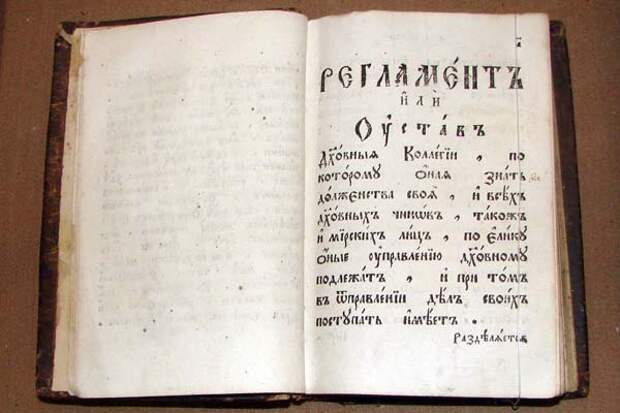 РЕГЛАМЕ́НТЪ
и҆лѝ
Оу҆ста́въ
Дꙋхо́вныѧ Колле́гїи , по
кото́рому ѻ҆наѧ зна́ть
до́лженства своѧ̀ , и҆ всѣ́хъ
дꙋхо́вныхъ чинѡ́въ , та́кожъ
и҆ мїрски́хъ ли́цъ , по є҆ли́ку
ѻ҆́ные оу҆правле́нїю дꙋхо́вному
подлежа́тъ , и҆ при то́мъ
въ ѿправле́нїи дѣ́лъ свои́хъ
поступа́ть и҆мѣ́етъ .
Раздѣлѧ́етсѧ